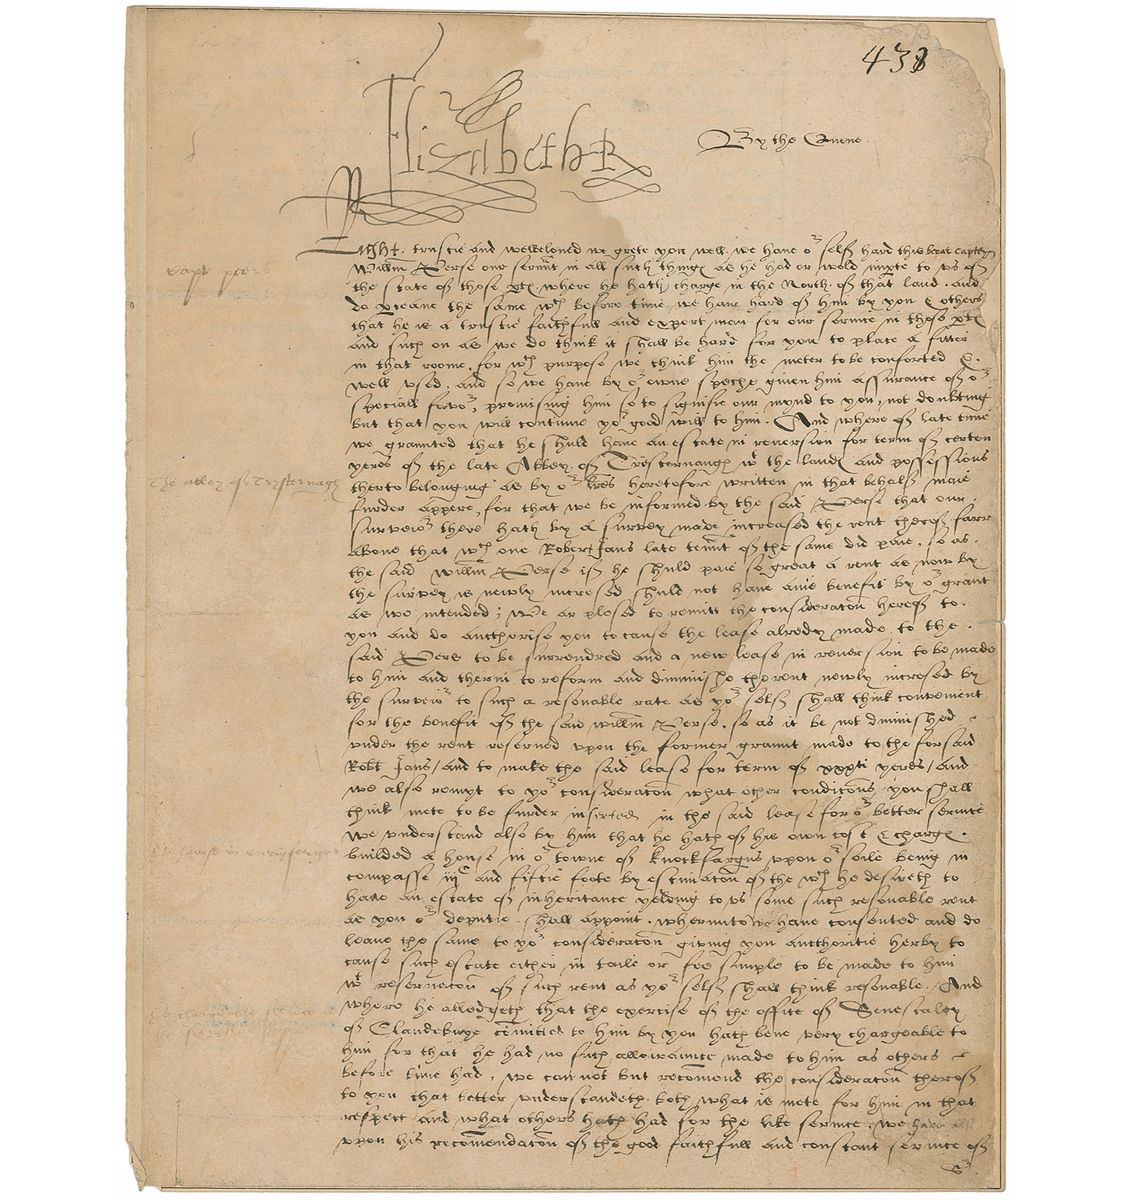 438
Elizabeth R
By the Quene.
Right trustie and welbeloued we grete you well. we haue oʳ self hard this berar capteyn
Willm̄ Perse our seruāt in all such things as he had or wold impte to vs of
the state of those ptꝭ where he hath charge in the North of that land. And
as the same wᶜʰ before time we haue hard of him by you & others
that he is a trustie faithfull and expert man for our seruice in those ptꝭ
and such on as we do think it shall be hard for you to place a fitter
in that roome, for wᶜʰ purpose we think him the meter to be conforted &
well vsed, and so we haue by oʳ owne speche given him assurance of oʳ
speciall favoʳ, promising him so to signifie our mynd to you, not doubting
but that you will contynue yoʳ good will to him. And where of late time
we graunted that he shuld haue an estate in reuersion for term of certen
yeres of the late Abbey of Tristernaugh wᵗ the landꝭ and possessions
therto belonging as by oʳ lr̄es heretofore written in that behalf maie
furder appere, for that we be informed by the said Perse that our
surveioʳ there hath by a survey made increased the rent therof farr
aboue that wᶜʰ one Robert Jans late teñnt of the same did paie, so as
the said Willm̄ Perse if he shuld paie so great a rent as now by
the survey is newly incresed shuld not haue anie benefit by oʳ grant
as we intended; We ar plesed to remitt the consideracōn herof to
you and do aucthorise you to cause the lease alredy made to the
said Pers to be surrendred and a new lease in reuersion to be made
to him and therin to reform and diminishe the rent newly incresed by
the surveioʳ to such a resonable rate as yoʳ self shall think conuenient
for the benefit of the said Willm̄ Perse, so as it be not diminished
vnder the rent reserued vpon the former graunt made to the forsaid
Robt Jans / and to make the said lease for term of xxxti yeres / and
we also rempt to yoʳ consideracōn what other condicōns you shall
think mete to be furder inserted in the said lease for oʳ better seruice
We vnderstand also by him that he hath of his own cost & chargꝭ
builded a house in oʳ towne of Knockfargus vpon oʳ soile being in
compasse iijᶜ and fiftie foote by estimacōn of the wᶜʰ he desireth to
haue an estate of inheritance yelding to vs some such resonable rent
as you oʳ deputie shall appoint. wherunto we haue consented and do
leaue the same to yoʳ consideracōn giving you aucthoritie herby to
cause such estate either in taile or fee simple to be made to him
wᵗ reseruacōn of such rent as yoʳ self shall think resonable. And
where he alledgeth that the exercise of the office of Senescalcy
of Clandeboye cōmitted to him by you hath bene very chargeable to
him for that he had no such allowaunce made to him as others
before time had, we can not but recōmend the consideracōn therof
to you that better vnderstandeth both what is mete for him in that
respect and what others hath had for the like seruice. we haue also
vpon his recōmendacōn of the good faithfull and constant seruice of
Capt peers
The abbey of Trysternagh